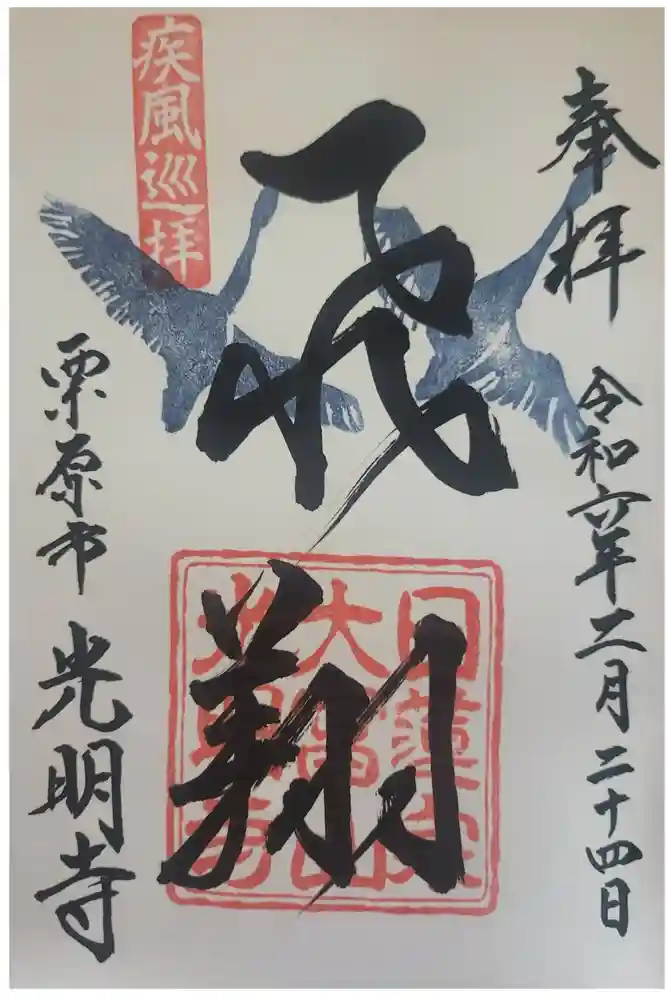 奉拝
令和六年二月二十四日
飛翔
疾風巡拝
日蓮宗
光明寺
栗原市 光明寺